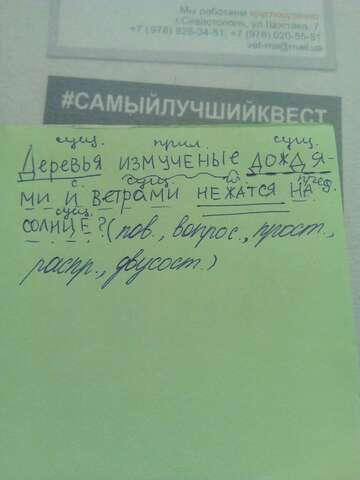 Мы работаем круглосуточно
г.Севастополь, ул.Шостака, 7
+7 (978) 828-34-51; +7 (978) 020-55-51
vet-ma@mail.ua
#САМЫЙЛУЧШИЙКВЕСТ
сущ. прил. сущ.
Деревья измученые дождя-
с. сущ. гл. пред.
ми и ветрами нежатся на
сущ.
солнце? (пов., вопрос., прост.,
распр., двусост.)